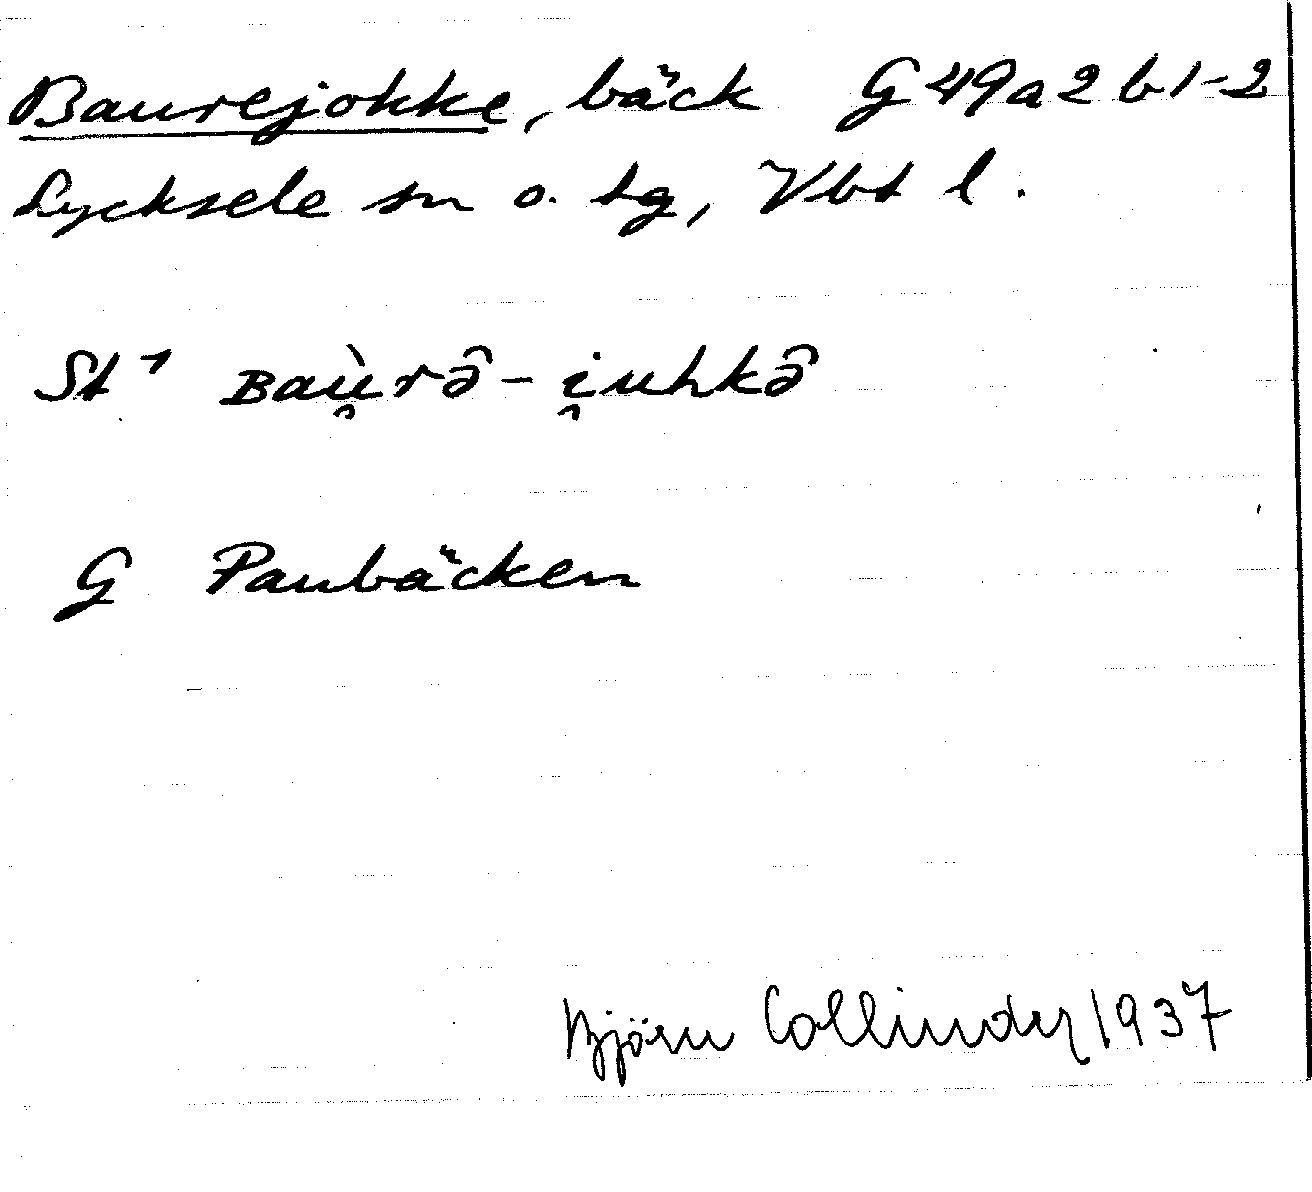 Baurejokke, bäck G 49 a 2 b 1-2
Lycksele sn o. tg, Vbt l.
St¹ ʙaù̯rə̂ - i̯uhkə̂
G Paubäcken
Björn Collinder 1937